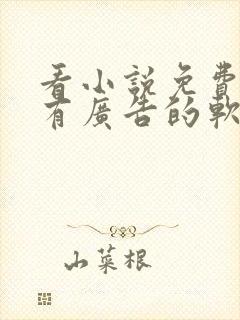 看小説免費
有廣告的軟
山菜根